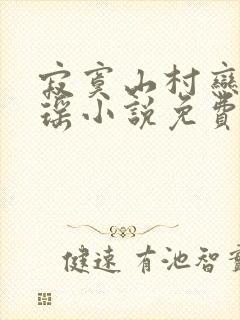 寂寞山村戀
瑶小說免費
健速 有池智實